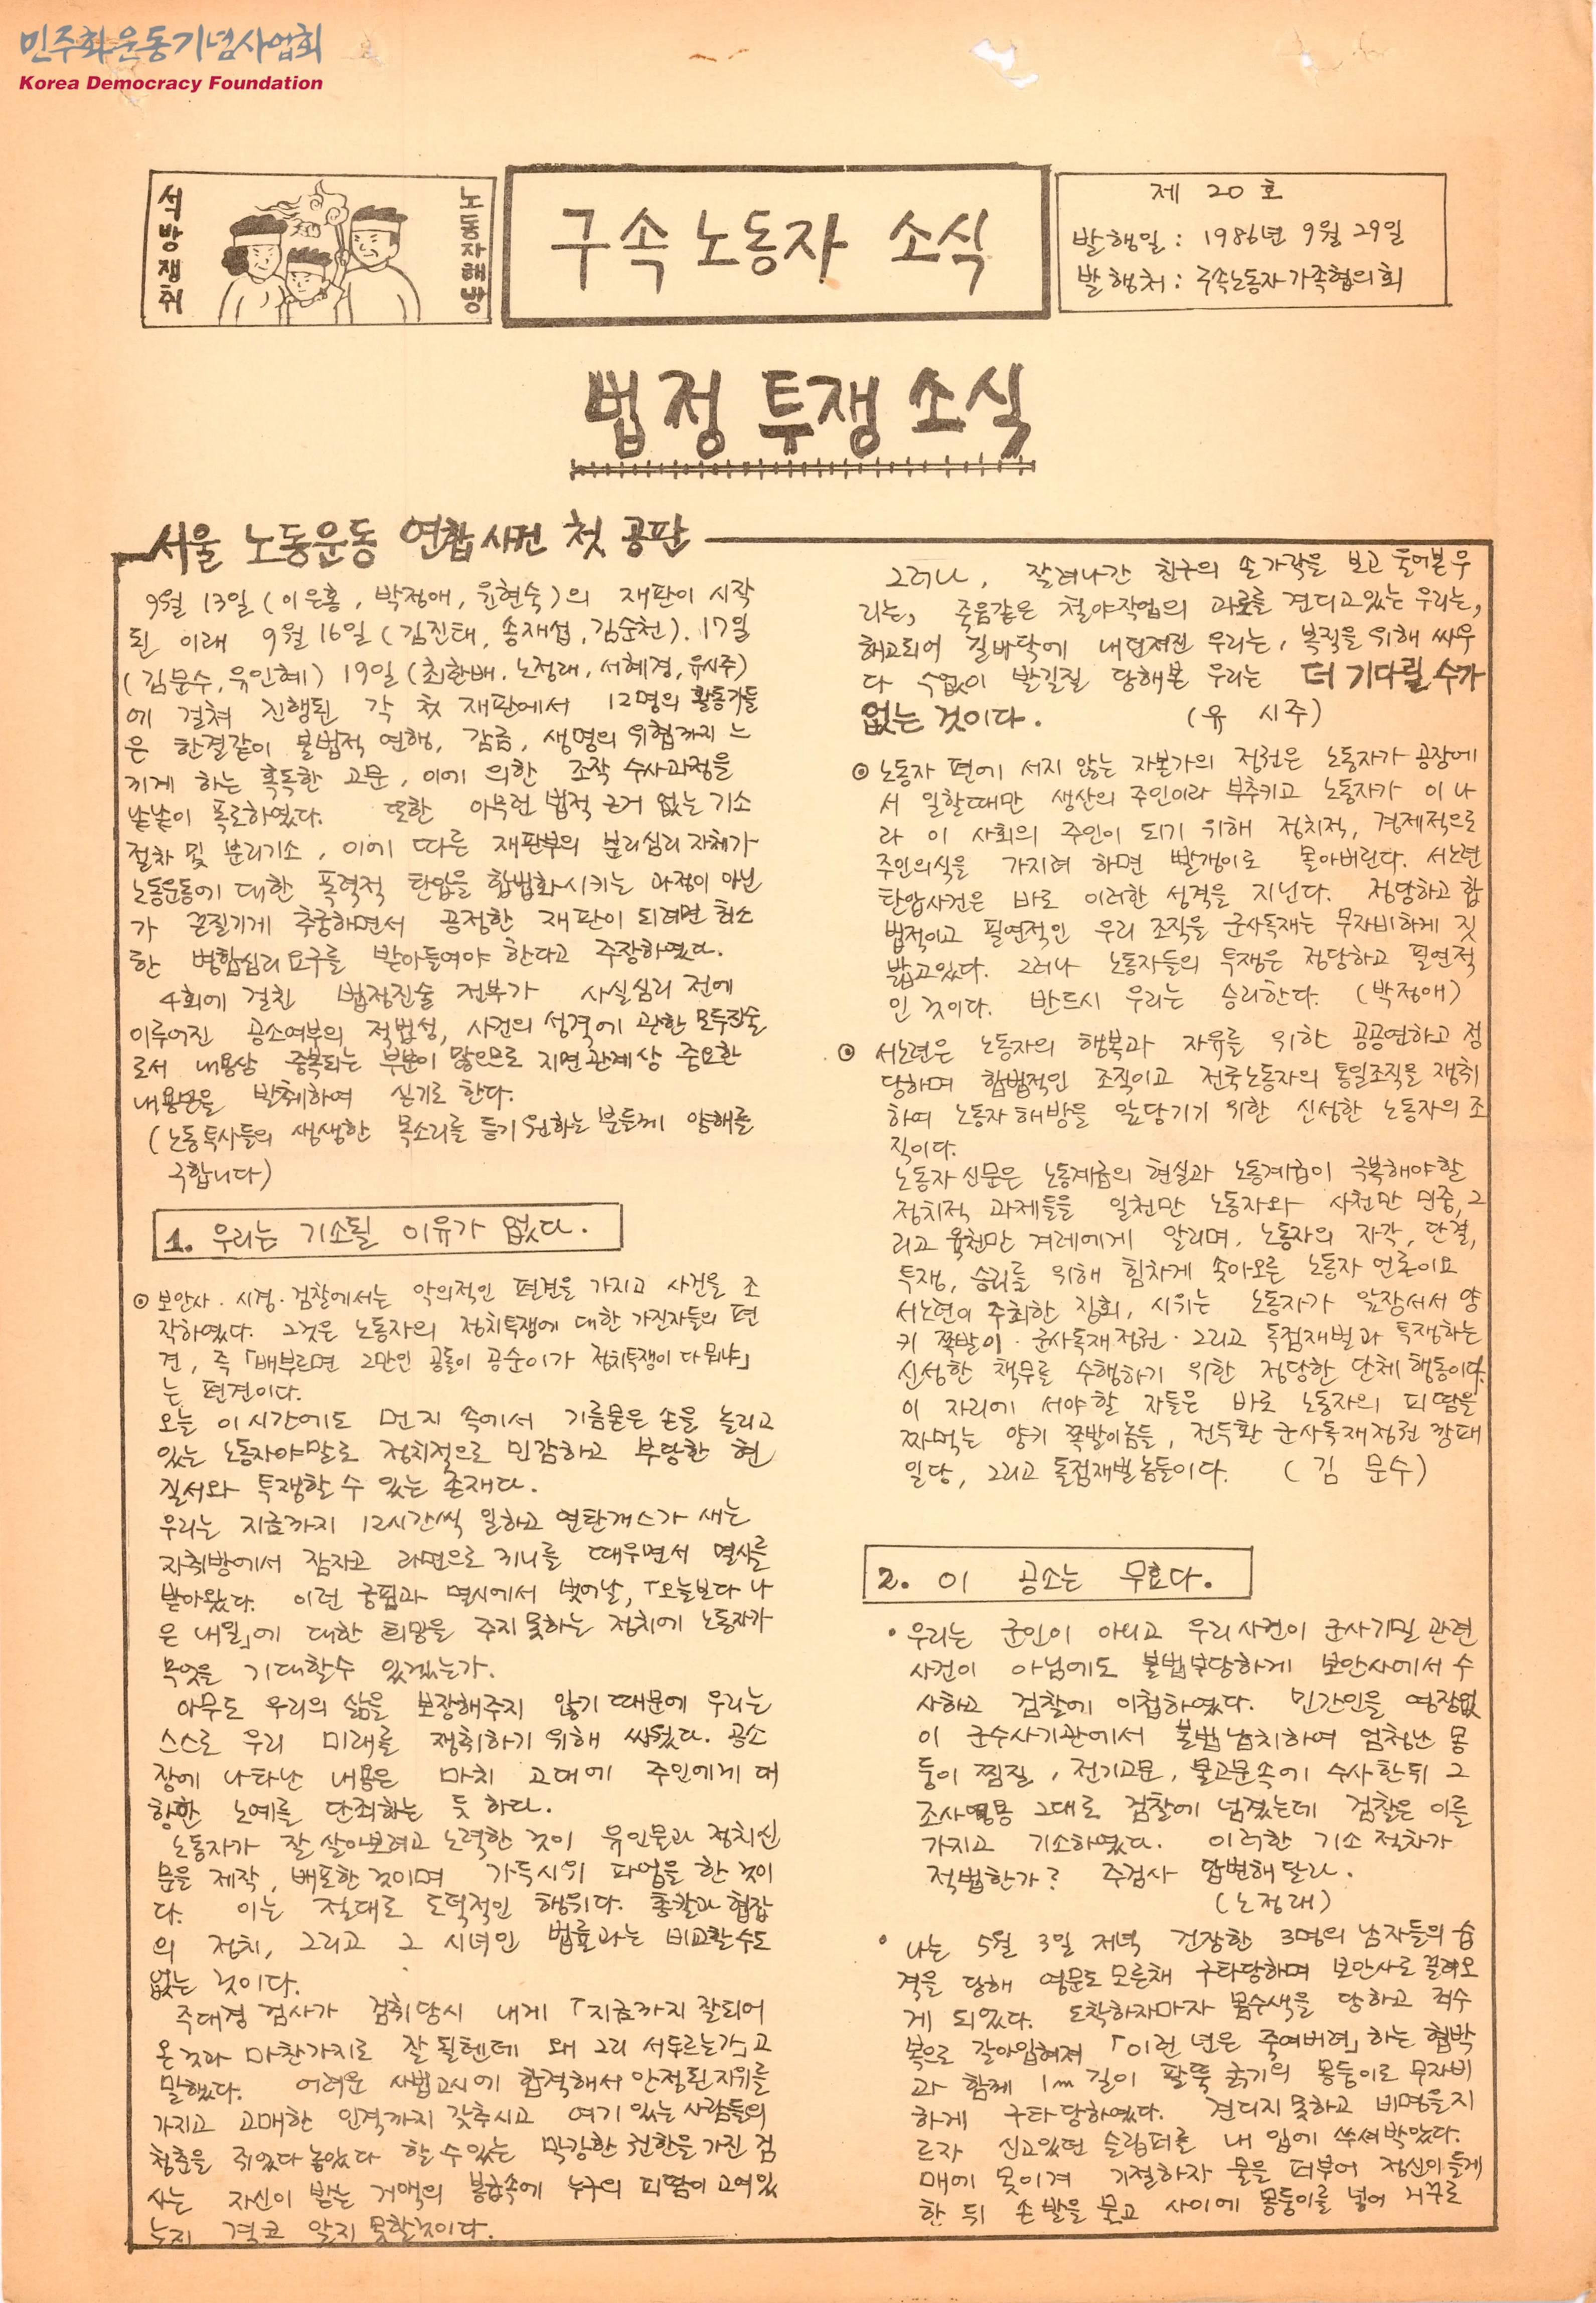 민주화운동기념사업회
Korea Democracy Foundation
석방쟁취
노동자해방
구속노동자 소식
제 20호
발행일 : 1986년 9월 29일
발행처 : 구속노동자가족협의회
법정 투쟁 소식
서울 노동운동 연합사건 첫 공판
9월 13일 (이은홍, 박정애, 윤현숙)의 재판이 시작
된 이래 9월 16일 (김진태, 송재섭, 김순천). 17일
(김문수, 유인혜) 19일 (최한배. 노정래, 서혜경, 유시주)
에 걸쳐 진행된 각 첫 재판에서 12명의 활동가들
은 한결같이 불법적 연행, 감금, 생명의 위협까지 느
끼게 하는 혹독한 고문, 이에 의한 조작 수사과정을
낱낱이 폭로하였다. 또한 아무런 법적 근거 없는 기소
절차 및 분리기소, 이에 따른 재판부의 분리심리 자체가
노동운동에 대한 폭력적 탄압을 합법화시키는 과정이 아닌
가 끈질기게 추궁하면서 공정한 재판이 되려면 최소
한 병합심리요구를 받아들여야 한다고 주장하였다.
4회에 걸친 법정진술 전부가 사실심리 전에
이루어진 공소여부의 적법성, 사건의 성격에 관한 모두진술
로서 내용상 중복되는 부분이 많으므로 지면관계상 중요한
내용만을 발췌하여 싣기로 한다.
(노동투사들의 생생한 목소리를 듣기 원하는 분들께 양해를
구합니다)
1. 우리는 기소될 이유가 없다.
◉ 보안사 · 시경 · 검찰에서는 악의적인 편견을 가지고 사건을 조
작하였다. 그것은 노동자의 정치투쟁에 대한 가진자들의 편
견, 즉 「배부르면 그만인 공돌이 공순이가 정치투쟁이 다 뭐냐」
는 편견이다.
오늘 이 시간에도 먼지 속에서 기름묻은 손을 놀리고
있는 노동자야말로 정치적으로 민감하고 부당한 현
질서와 투쟁할 수 있는 존재다.
우리는 지금까지 12시간씩 일하고 연탄개스가 새는
자취방에서 잠자고 라면으로 끼니를 때우면서 멸시를
받아왔다. 이런 궁핍과 멸시에서 벗어날, 「오늘보다 나
은 내일」에 대한 희망을 주지 못하는 정치에 노동자가
무엇을 기대할수 있겠는가.
아무도 우리의 삶을 보장해주지 않기 때문에 우리는
스스로 우리 미래를 쟁취하기 위해 싸웠다. 공소
장에 나타난 내용은 마치 고대에 주인에게 대
항한 노예를 단죄하는 듯 하다.
노동자가 잘 살아보려고 노력한 것이 유인물과 정치신
문을 제작, 배포한 것이며 가두시위 파업을 한 것이
다. 이는 절대로 도덕적인 행위다. 총칼과 협잡
의 정치, 그리고 그 시녀인 법률과는 비교할수도
없는 것이다.
주대경 검사가 검취당시 내게 「지금까지 잘되어
온것과 마찬가지로 잘 될텐데 왜 그리 서두르는가」고
말했다. 어려운 사법고시에 합격해서 안정된 지위를
가지고 고매한 인격까지 갖추시고 여기 있는 사람들의
청춘을 쥐었다 놓았다 할 수 있는 막강한 권한을 가진 검
사는 자신이 받는 거액의 봉급속에 누구의 피땀이 고여있
는지 결코 알지 못할것이다.
그러나, 잘려나간 친구의 손가락을 보고 울어본 우
리는, 죽음같은 철야작업의 과로를 견디고있는 우리는,
해고되어 길바닥에 내던져진 우리는, 복직을 위해 싸우
다 수없이 발길질 당해본 우리는 더 기다릴 수가
없는 것이다. (유 시주)
◉ 노동자 편에 서지 않는 자본가의 정권은 노동자가 공장에
서 일할때만 생산의 주인이라 부추키고 노동자가 이 나
라 이 사회의 주인이 되기 위해 정치적, 경제적으로
주인의식을 가지려 하면 빨갱이로 몰아버린다. 서노련
탄압사건은 바로 이러한 성격을 지닌다. 정당하고 합
법적이고 필연적인 우리 조직을 군사독재는 무자비하게 짓
밟고있다. 그러나 노동자들의 투쟁은 정당하고 필연적
인 것이다. 반드시 우리는 승리한다. (박정애)
◉ 서노련은 노동자의 행복과 자유를 위한 공공연하고 정
당하며 합법적인 조직이고 전국노동자의 통일조직을 쟁취
하여 노동자 해방을 앞당기기 위한 신성한 노동자의 조
직이다.
노동자신문은 노동계급의 현실과 노동계급이 극복해야할
정치적 과제들을 일천만 노동자와 사천만 민중, 그
리고 육천만 겨레에게 알리며, 노동자의 자각, 단결,
투쟁, 승리를 위해 힘차게 솟아오른 노동자 언론이요
서노련이 주최한 집회, 시위는 노동자가 앞장서서 양
키 쪽발이 · 군사독재정권 · 그리고 독점재벌과 투쟁하는
신성한 책무를 수행하기 위한 정당한 단체행동이다.
이 자리에 서야할 자들은 바로 노동자의 피땀을
짜먹는 양키 쪽발이놈들, 전두환 군사독재정권 깡패
일당, 그리고 독점재벌놈들이다. (김 문수)
2. 이 공소는 무효다.
• 우리는 군인이 아니고 우리사건이 군사기밀 관련
사건이 아님에도 불법부당하게 보안사에서 수
사하고 검찰에 이첩하였다. 민간인을 영장없
이 군수사기관에서 불법납치하여 엄청난 몽
둥이 찜질, 전기고문, 물고문속에 수사한뒤 그
조사내용 그대로 검찰에 넘겼는데 검찰은 이를
가지고 기소하였다. 이러한 기소 절차가
적법한가? 주검사 답변해달라.
(노정래)
• 나는 5월 3일 저녁 건장한 3명의 남자들의 습
격을 당해 영문도 모른채 구타당하며 보안사로 끌려오
게 되었다. 도착하자마자 몸수색을 당하고 죄수
복으로 갈아입혀져 「이런 년은 죽여버려」 하는 협박
과 함께 1m 길이 팔뚝 굵기의 몽둥이로 무자비
하게 구타당하였다. 견디지못하고 비명을지
르자 신고있던 슬립퍼를 내 입에 쑤셔박았다.
매에 못이겨 기절하자 물을 퍼부어 정신이들게
한 뒤 손발을 묶고 사이에 몽둥이를 넣어 거꾸로